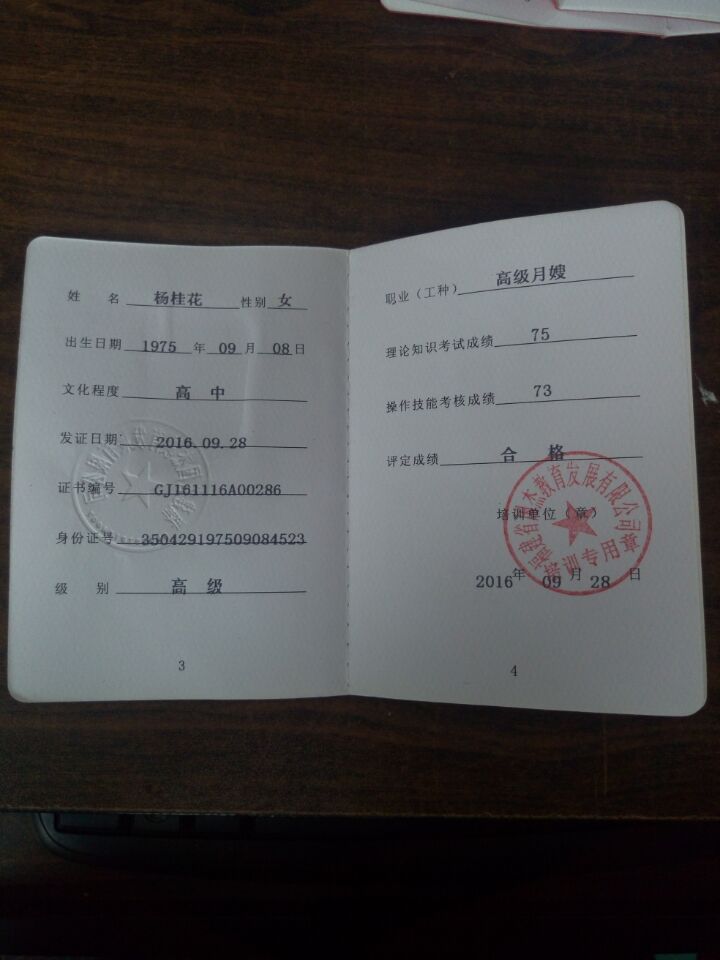 姓 名 杨桂花 性别 女
出生日期 1975 年 09 月 08 日
文化程度 高 中
发证日期 2016.09.28
证书编号 GJ161116A00286
身份证号 350429197509084523
级 别 高 级
3
职业（工种） 高级月嫂
理论知识考试成绩 75
操作技能考核成绩 73
评定成绩 合 格
培训单位（章）
福建省 杰教育发展有限公司
培训专用章
2016 年 09 月 28 日
4